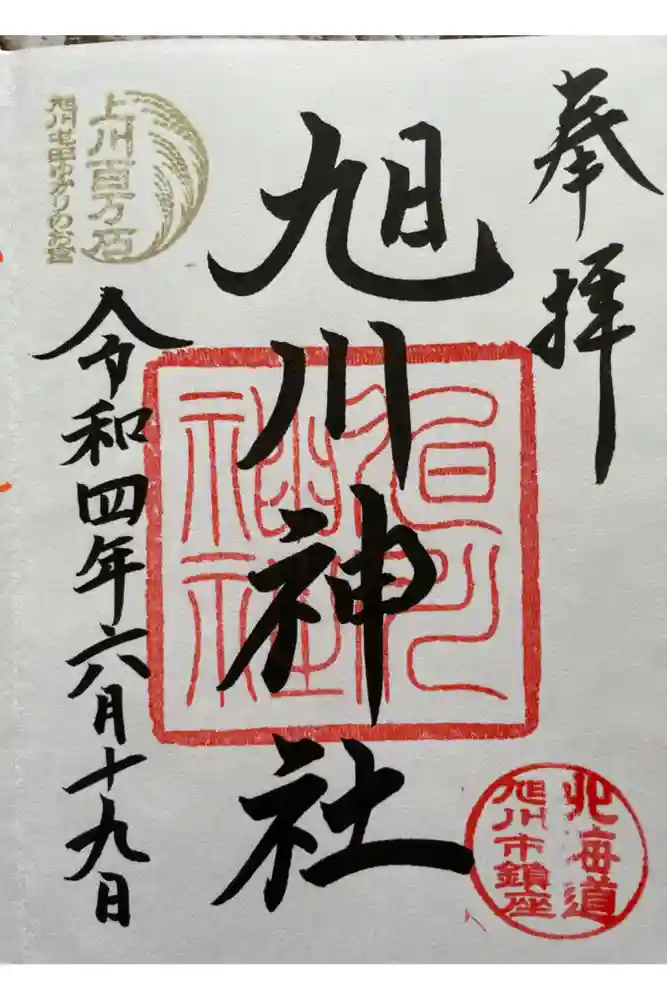 奉拝
旭川神社
令和四年六月十九日
上川百万石
旭川屯田ゆかりのお宮
旭川神社
北海道
旭川市鎮座